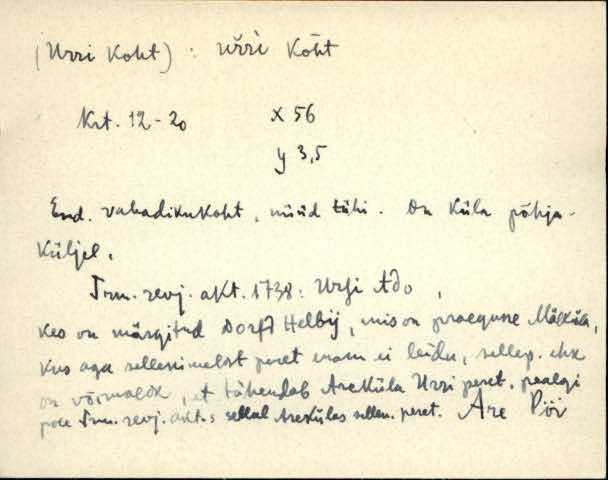 (Urri Koht) : ŭr̆r̀i Kŏ̀ht
Krt. 12-20 x 56
y 3,5
End. vabadikukoht, nüüd tühi. On küla põhja-
küljel.
Trm. revj. akt. 1738: Urfi Ado,
kes on märgitud Dorff Helbij, mis on praegune Mälküla,
kus aga sellenimelist peret enam ei leidu, sellep. ehk
on võimalik, et tähendab Areküla Urri peret,
pole Trm. revj. akt.s sellal Arekülas sellen. peret. Are Pöi